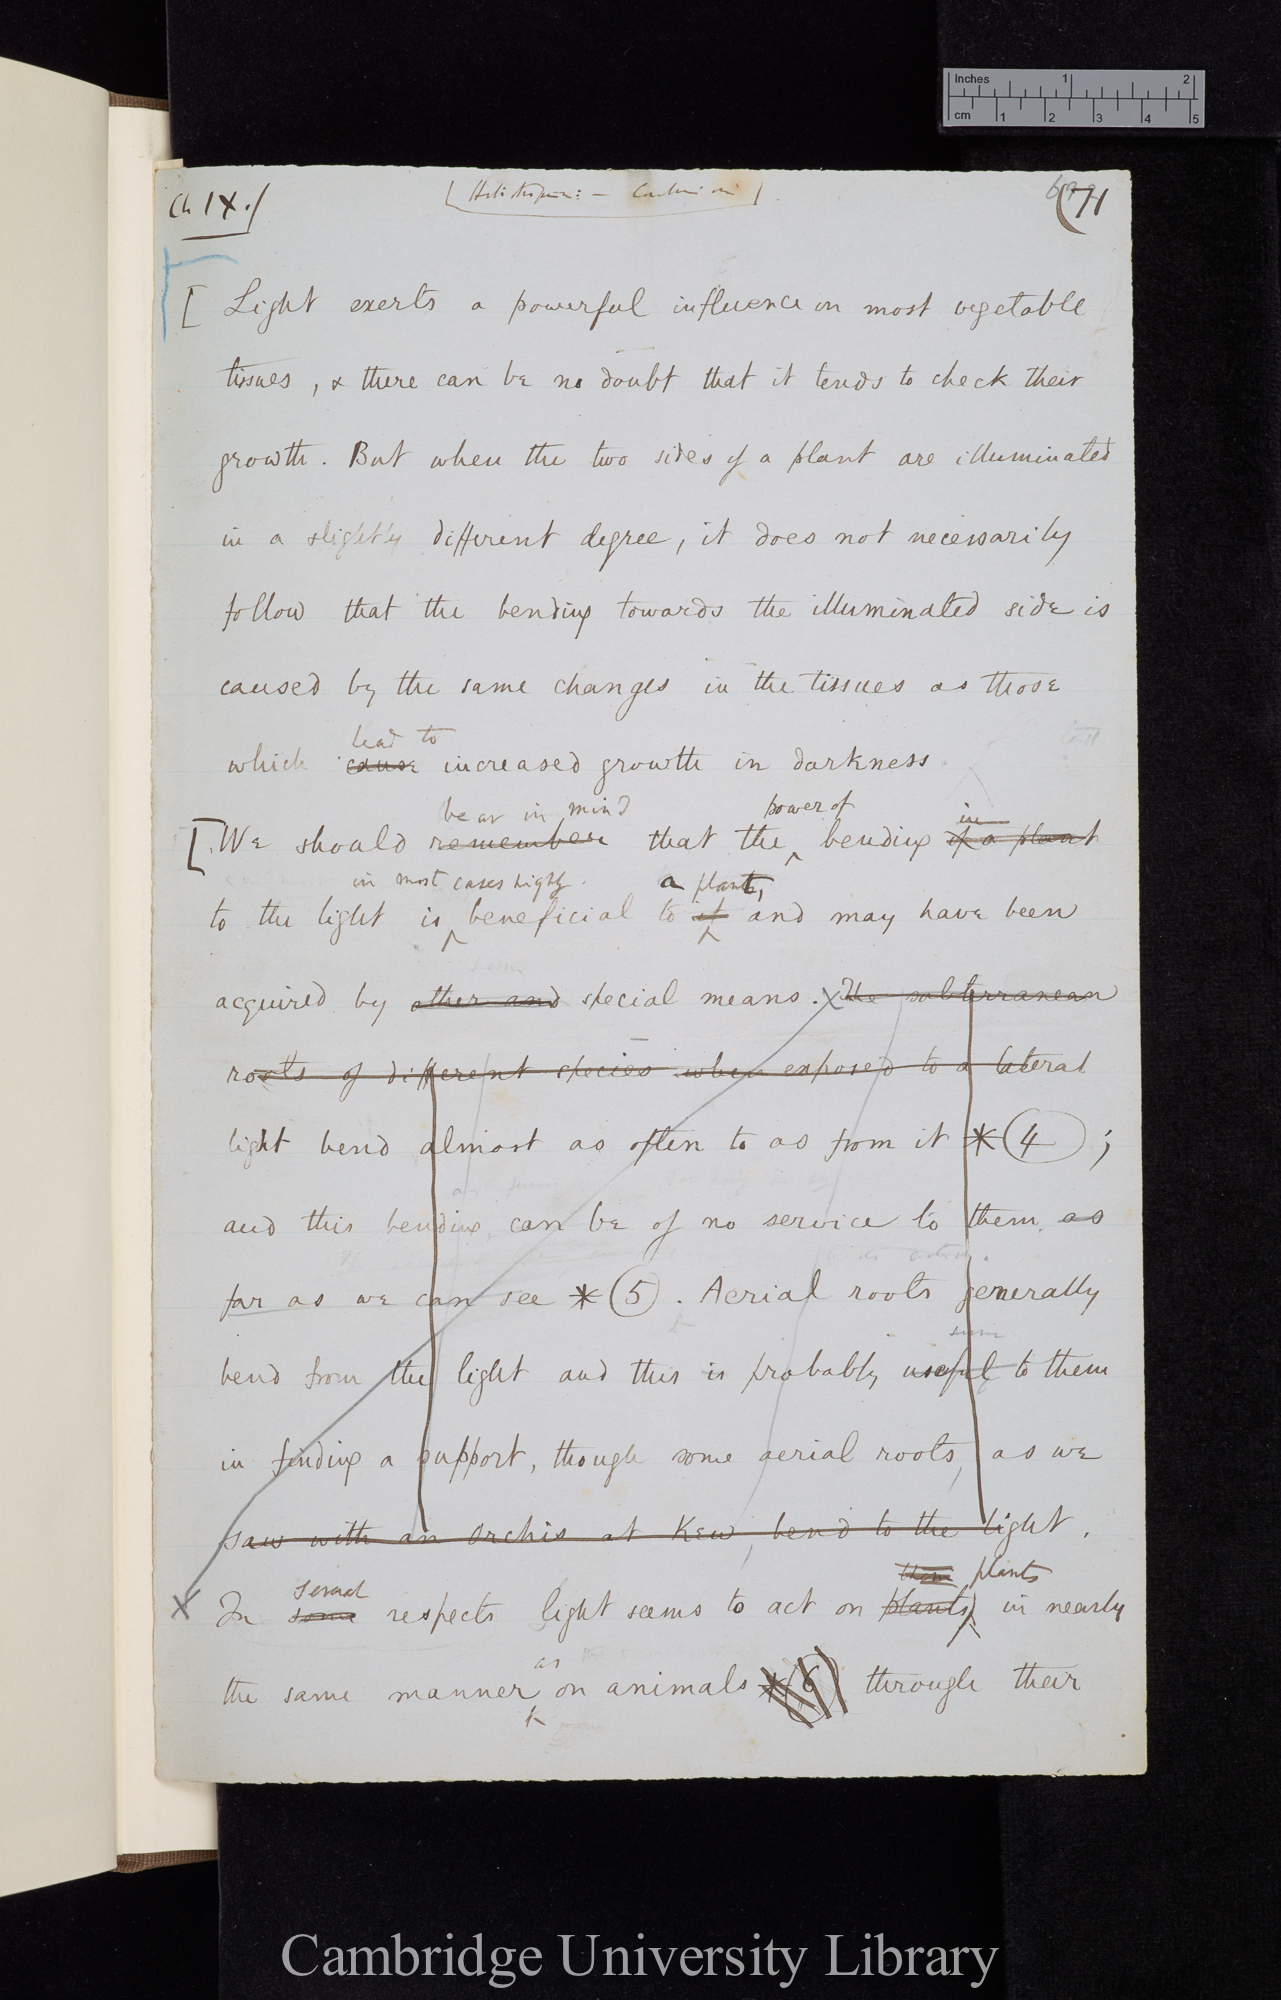 Inches 1 2
cm 1 2 3 4 5
Ch IX.
Heliotropism: —
(71
[ Light exerts a powerful influence on most vegetable
tissues, & there can be no doubt that it tends to check their
growth. But when the two sides of a plant are illuminated
in a slightly different degree, it does not necessarily
follow that the bending towards the illuminated side is
caused by the same changes in the tissues as those
lead to
which cause increased growth in darkness
bear in mind power of in
[We should remember that the bending of a plant
in most cases highly a plant,
to the light is beneficial to it and may have been
acquired by other and special means. X The subterranean
roots of different species when exposed to a lateral
light bend almost as often to as from it * 4 ;
and this bending can be of no service to them, as
far as we can see * 5 . Aerial roots generally
bend from the light and this is probably useful to them
in finding a support, though some aerial roots, as we
saw with an Orchis at Kew, bend to the light.
several them plants
X In some respects light seems to act on plants in nearly
as
the same manner on animals * 6 through their
Cambridge University Library